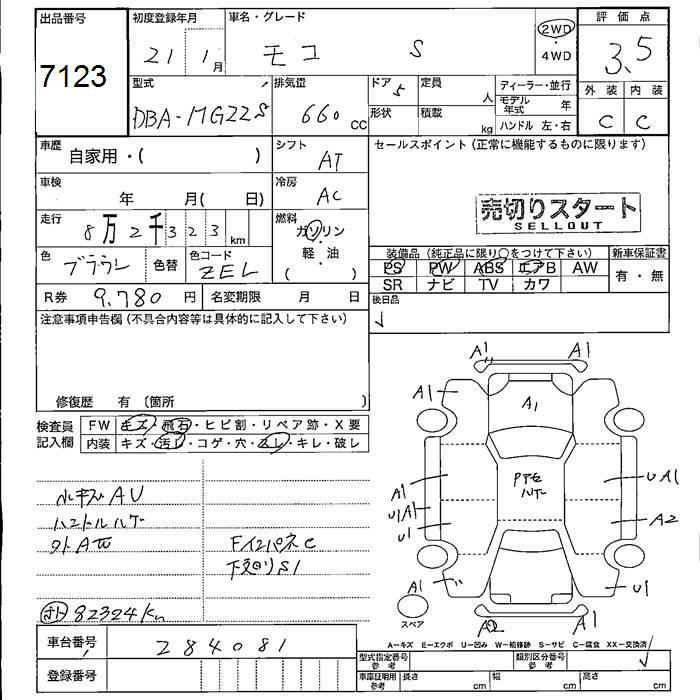 出品番号
7123
初度登録年月
21 1月
車名・グレード
モコ S
2WD
・
4WD
評価点
3.5
外装 内装
C C
型式
DBA-MG22S
排気量
660 CC
ドア 5
形状
定員 人
積載 kg
ディーラー・並行
モデル年式 年
ハンドル 左・右
車歴
自家用・( )
シフト
AT
セールスポイント (正常に機能するものに限ります)
車検
年 月( 日)
冷房
AC
売切りスタート
SELLOUT
走行
8万2千323km
燃料
ガソリン
・
軽・油
( )
色
ブラウン
色替
色コード
ZEL
装備品 (純正品に限り○をつけて下さい)
PS PW ABS エアB AW
SR ナビ TV カワ
新車保証書
有・無
R券 9,780 円
名変期限 月 日
後日品
注意事項申告欄 (不具合内容等は具体的に記入して下さい)
修復歴 有 〔箇所 〕
検査員
記入欄
FW キズ・飛石・ヒビ割・リペア跡・X要
内装 キズ・汚レ・コゲ・穴・スレ・キレ・破レ
小キズAU
ハンドルハゲ
外A
FインパネC
下廻りS1
82324Km
A1 A1
A1 A1
A1 UA1
U1A1
U1 A2
A1 U1
A2
スペア
A=キズ E=エクボ U=凹み W=補修跡 S=サビ C=腐食 XX=交換済
車台番号
284081
登録番号
型式指定番号
参考
類別区分番号
参考
車庫証明用
参考
長さ cm
幅 cm
高さ cm